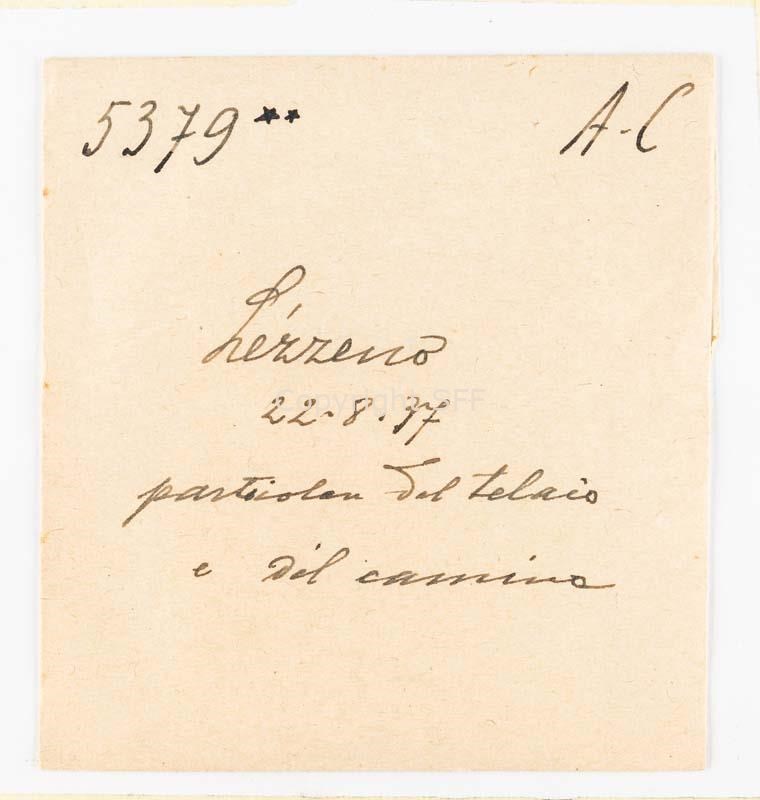 5379** A-C
Lézzeno
Copyright SFF
22-8.37
particolari del telaio
e del camino